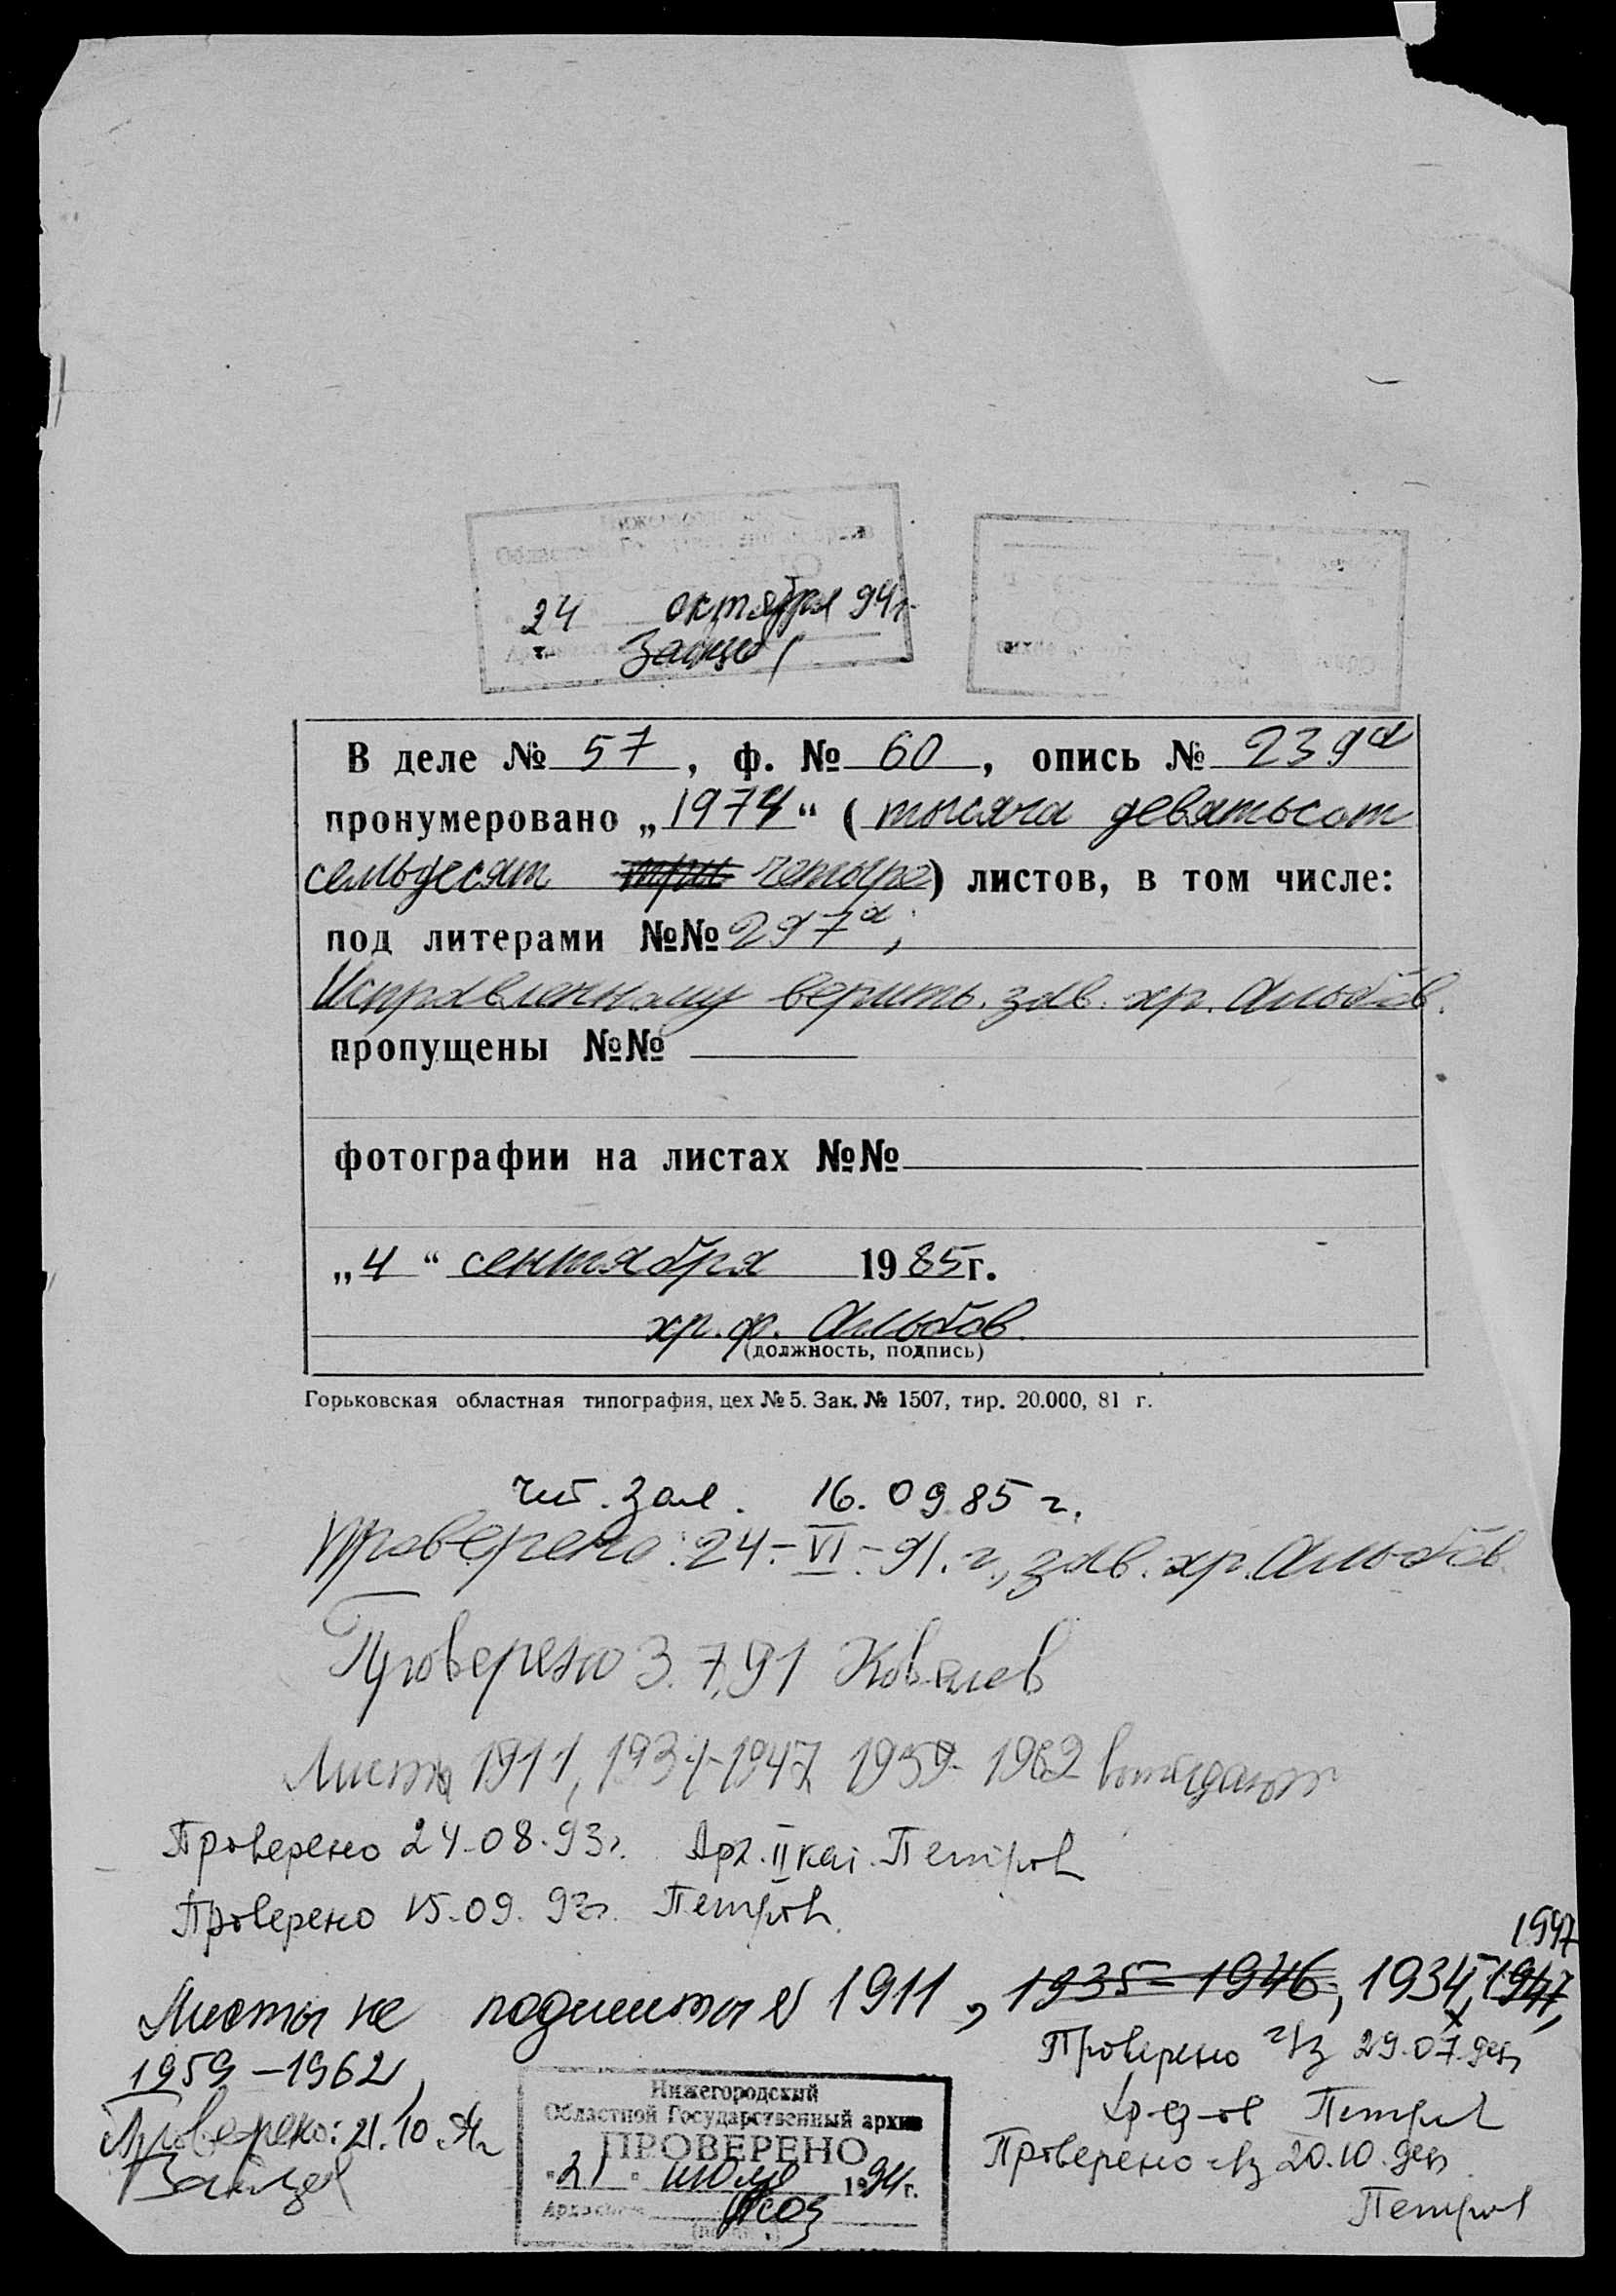 Нижегородский
Областной Государственный архив
24 октября 94г.
Зайцев
В деле № 57, ф. № 60, опись № 239а
пронумеровано „1974“ (тысяча девятьсот
семьдесят три четыре) листов, в том числе:
под литерами №№ 297а,
Исправленному верить. зав. хр. Альбов.
пропущены №№
фотографии на листах №№
„4“ сентября 1985г.
хр. ф. Альбов.
(должность, подпись)
Горьковская областная типография, цех № 5. Зак. № 1507, тир. 20.000, 81 г.
чит. зал. 16.09.85 г.
Проверено: 24.-VI-91.г., зав. хр. Альбов.
Проверено 3.7.91 Ковалев
Листы 1911, 1934-1947, 1959-1962 выпадают
Проверено 24.08.93г. Арх. II кат. Петров
Проверено 15.09.93г. Петров.
1947
Листы не подшиты 1911, 1935-1946, 1934, 1947,
1959-1962,
Проверено 29.07.94г.
Петров
Проверено: 21.10.94г
Зайцев
Проверено 20.10.94г.
Петров
Нижегородский
Областной Государственный архив
ПРОВЕРЕНО
"21" июля 1994г.